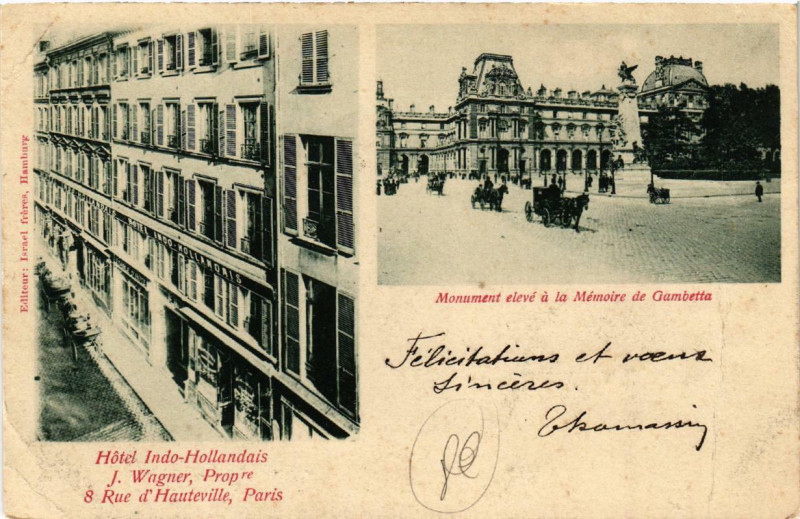 Editeur: Israel frères, Hamburg
HÔTEL INDO-HOLLANDAIS
Hôtel Indo-Hollandais
J. Wagner, Propre
8 Rue d'Hauteville, Paris
Monument elevé à la Mémoire de Gambetta
Félicitations et vœux
sincères.
Thomassin